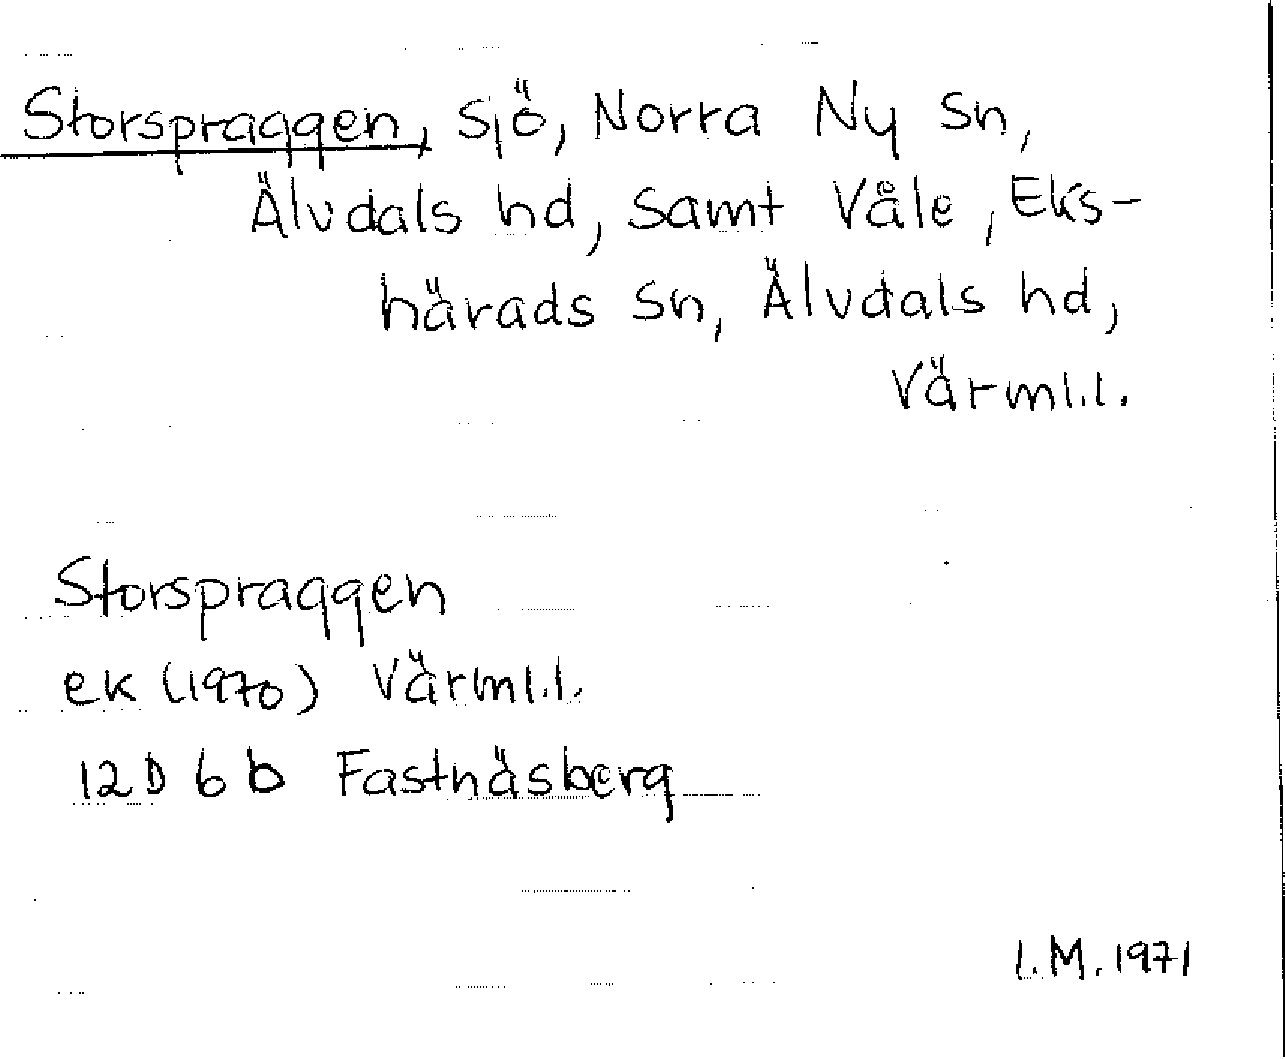 Storspraggen, sjö, Norra Ny sn,
Älvdals hd, samt Våle, Eks-
härads sn, Älvdals hd,
Värml.l.
Storspraggen
ek (1970) Värml.l.
12D 6b Fastnäsberg
I.M. 1971